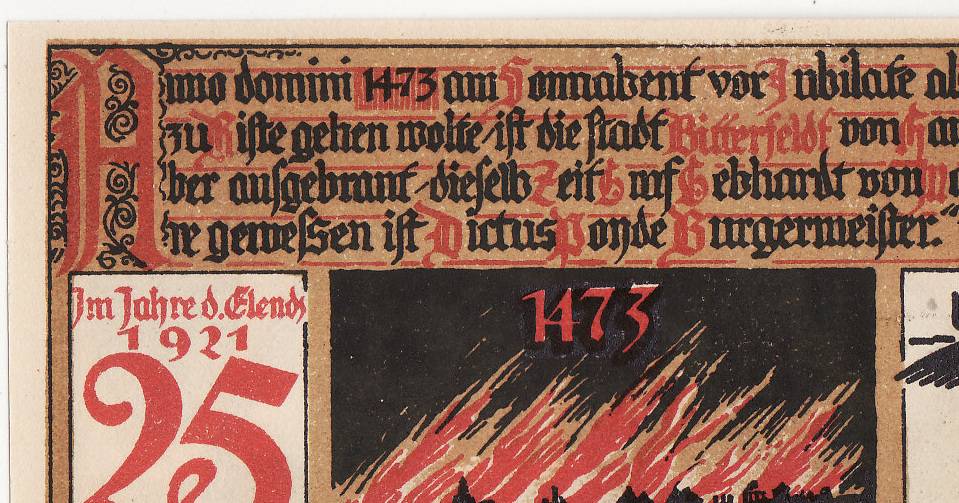 Anno domini 1473 am Sonnabent vor Jubilate al
zu Riste gehen wolte ist die stadt Bitterfeldt von
ber ausgebrant dieselb Zeit G Gebhardt von
re gewessen ist Dictus Ponde Burgermeister."
Im Jahre d. Elends
1921
25
1473